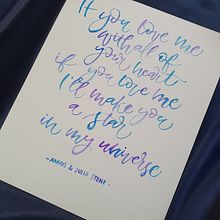 If you love me
with all of
your heart
if you love me
I'll make you
a star
in my universe
- ANGUS & JULIA STONE -